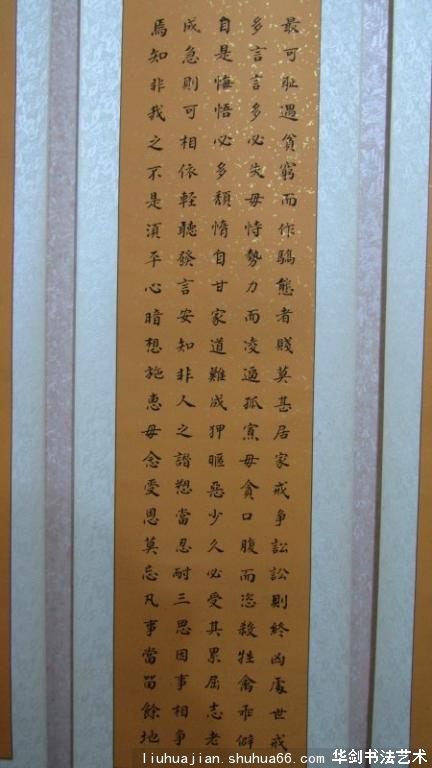 最可恥遇貧窮而作驕態者賤莫甚居家戒爭訟訟則終凶處世戒
多言言多必失毋恃勢力而凌逼孤寡毋貪口腹而恣殺牲禽乖僻
自是悔悟必多頹惰自甘家道難成狎暱惡少久必受其累屈志老
成急則可相依輕聽發言安知非人之譖愬當忍耐三思因事相爭
焉知非我之不是須平心暗想施惠毋念受恩莫忘凡事當留餘地
liuhuajian.shuhua66.com 华剑书法艺术